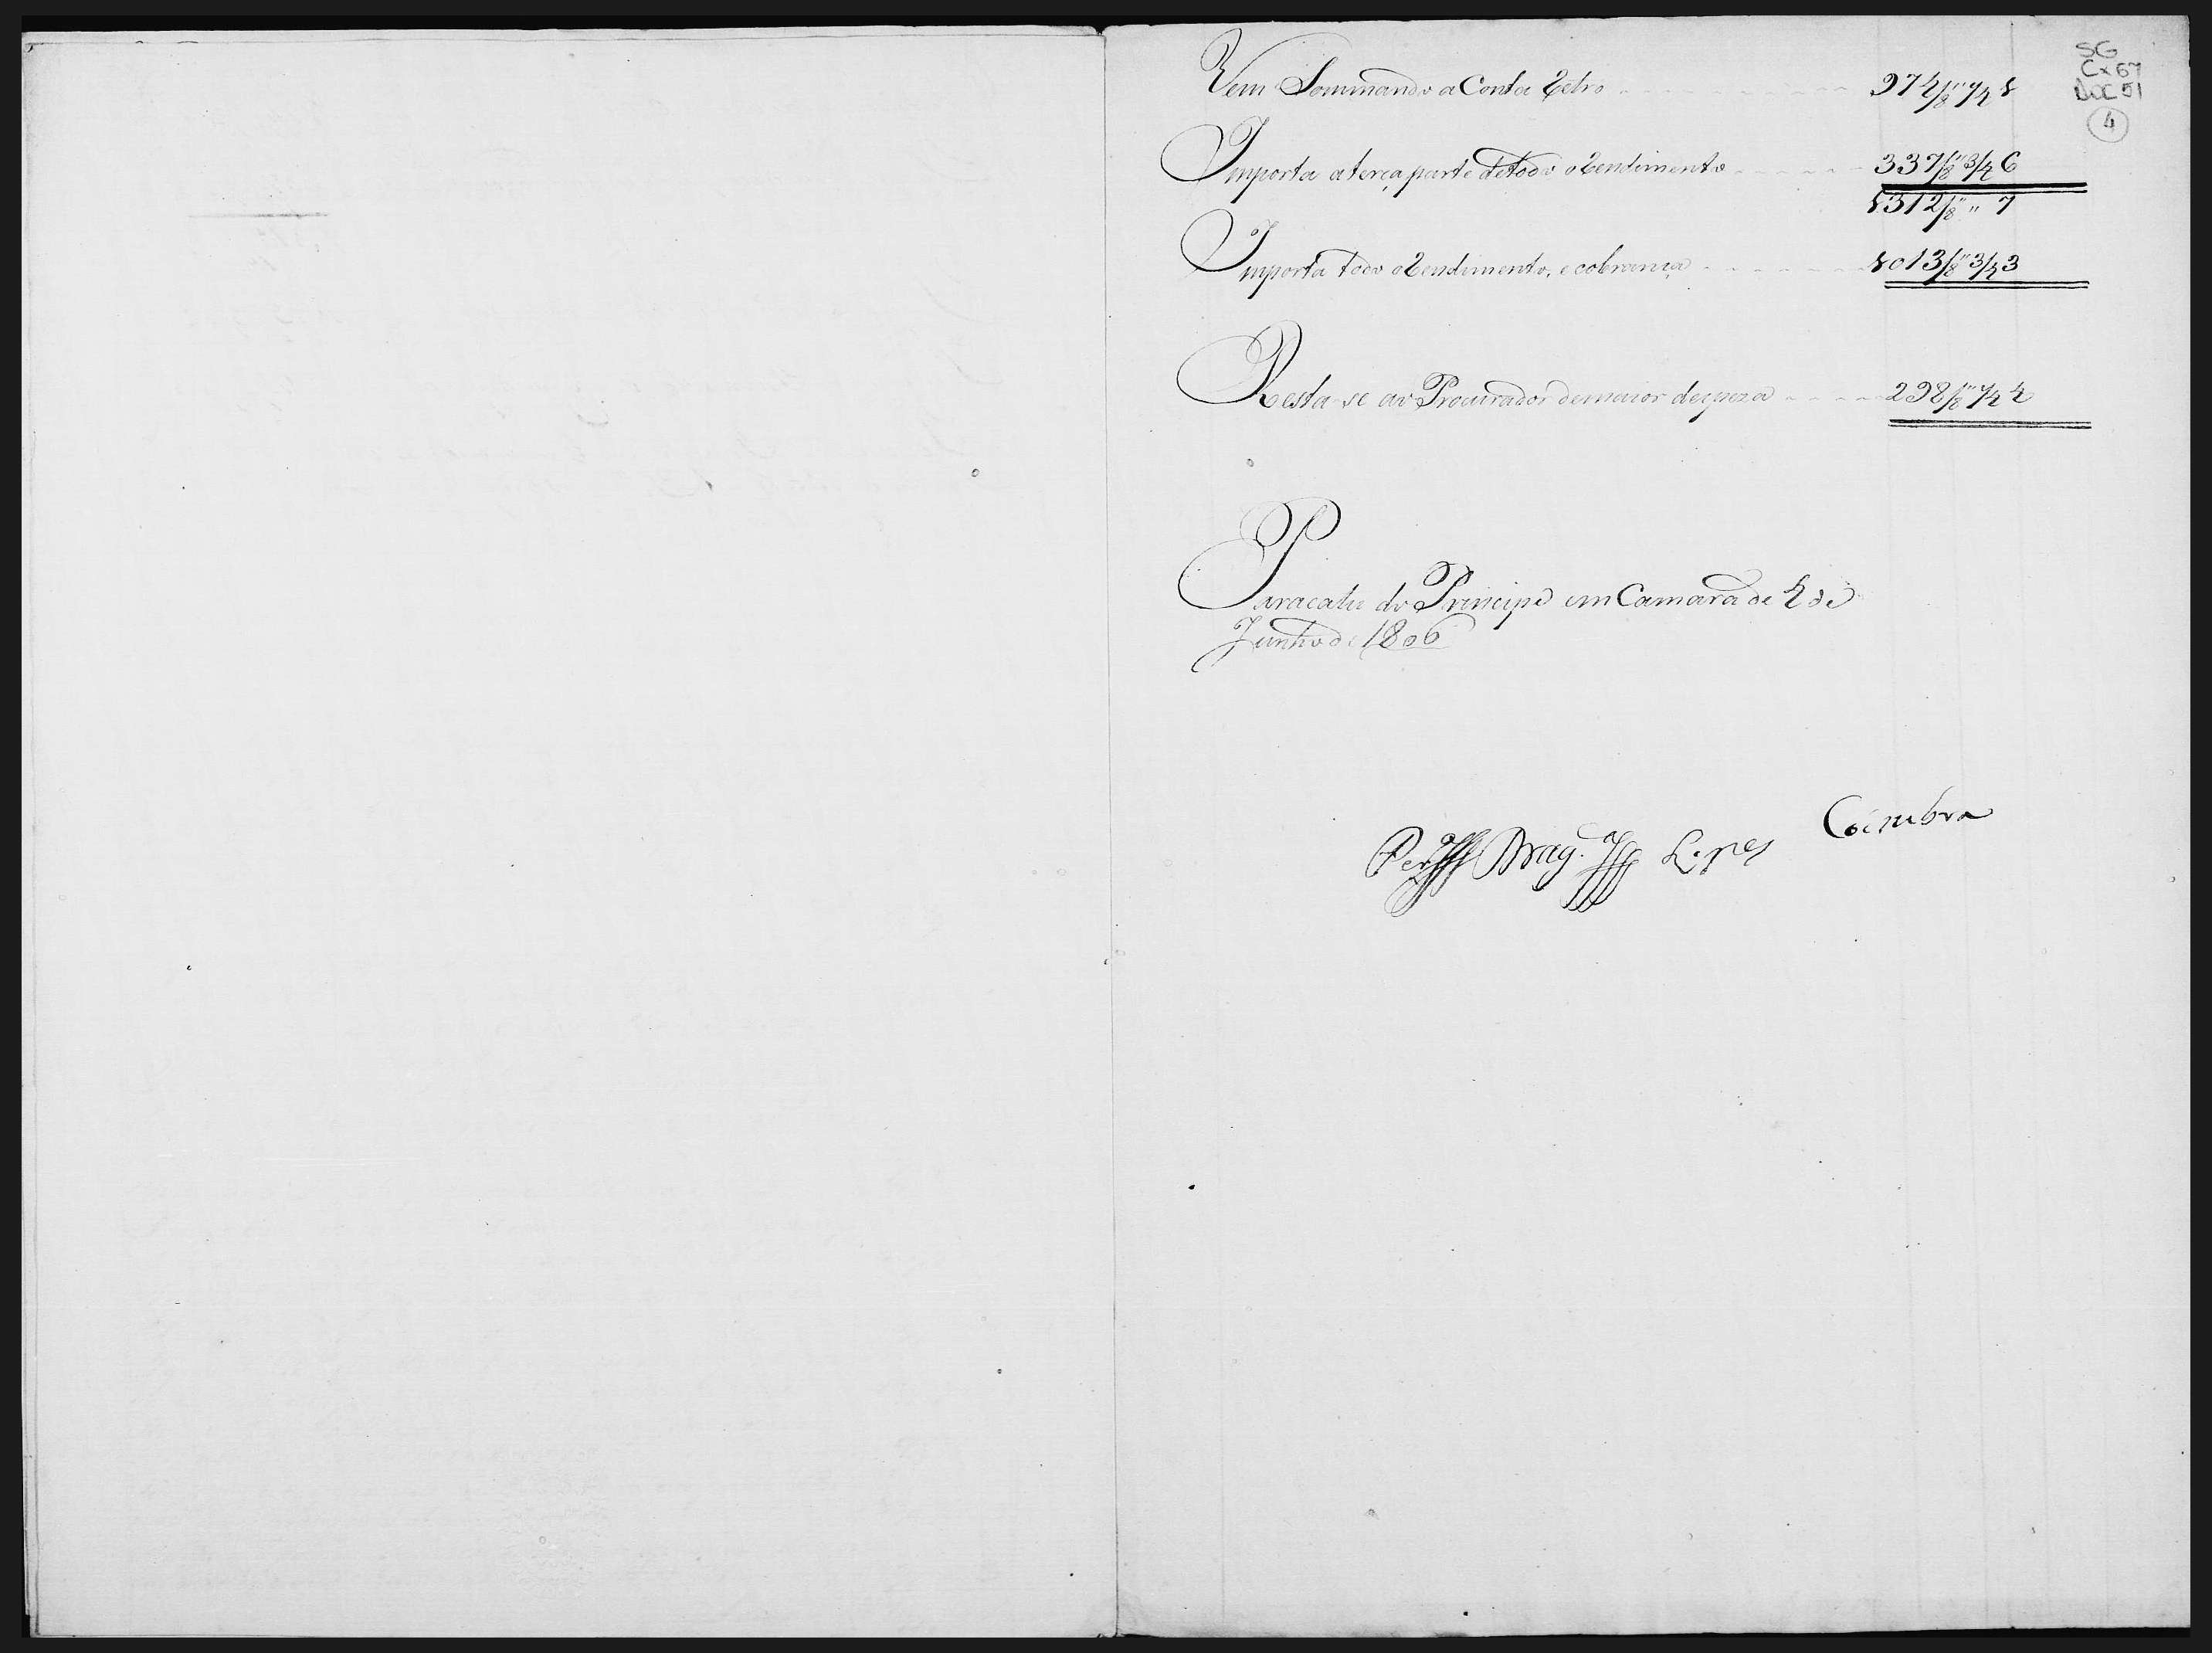 SG
Cx 67
DOC 01
4
Vem Sommando a Conta Retro 974/8" 1/4 1
Importa aterça parte detodo o Rendimento 337/8" 3/4 6
1312/8" " 7
Importa todo o Rendimento, e cobrança 1013/8" 3/4 3
Resta-se ao Procurador demaior despeza 298/8" 1/4 4
Paracatu do Principe em Camara de 4 de
Junho de 1806
Per.ª Brag. Lopes Coimbra